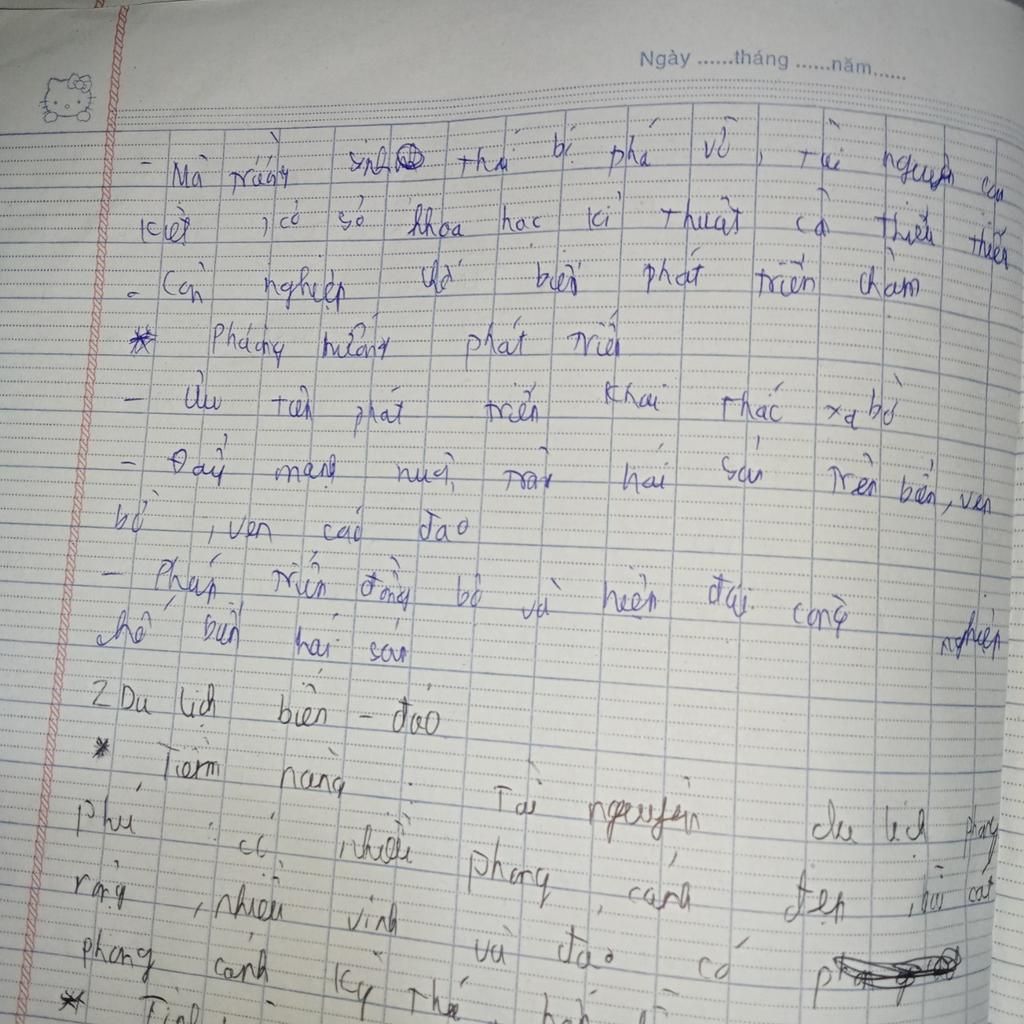 Ngày ......tháng ......năm......
- Mà trường sinh thái bị phá vỡ, tài nguyên cạn
kiệt, cơ sở khoa học kỉ thuật cò thiếu thiếu
- Còn nghiệp chế biến phát triển chậm
* Phương hướng phát triển
- Ưu tiên phát triển khai thác xa bờ
- Đẩy mạnh nuôi, trồng hải sản trên biển, ven
bờ, ven các đảo
- Phát triển đồng bộ và hiện đại công nghiệp
chế biến hải sản
2 Du lịch biển - đảo
* Tiềm năng: Tài nguyên du lịch phong
phú: có nhiều phong cảnh đẹp, bãi cát
rộng, nhiều vịnh và đảo có
phong cảnh kỳ thú
* Tình